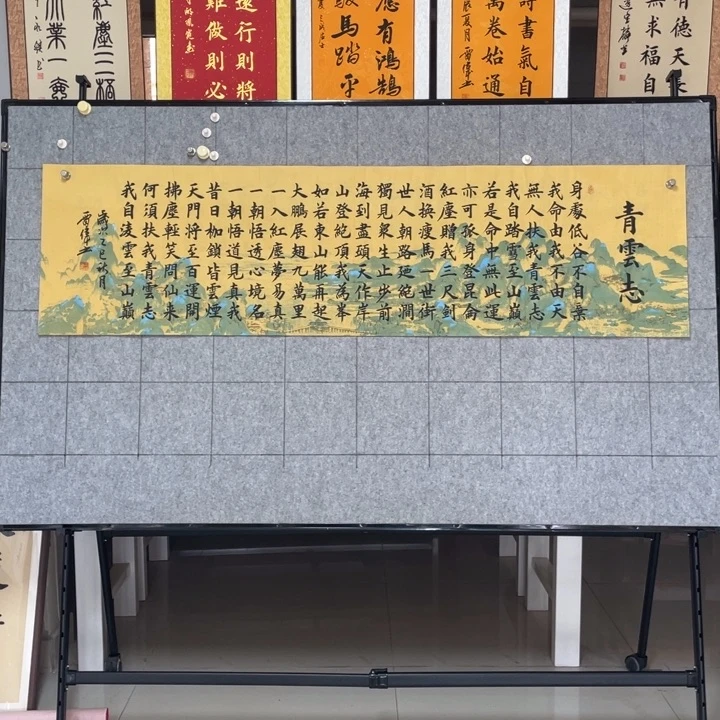 青雲志
身處低谷不自棄
我命由我不由天
無人扶我青雲志
我自踏雪至山巔
若是命中無此運
亦可孤身登昆侖
紅塵贈我三尺劍
酒換瘦馬一世街
世人朝路廻絕澗
獨見眾生止步前
海到盡頭天作岸
山登絕頂我為峯
如若東山能再起
大鵬展翅九萬里
一入紅塵夢易真
一朝悟透心境名
一朝悟道見真我
昔日枷鎖皆雲煙
天門將至百運開
拂塵輕笑問仙來
何須扶我青雲志
我自淩雲至山巔
歲次乙巳秋月
雷偉書
有德天
無求福自
書氣自
萬卷始通
夏月
雷偉書
應有鴻鵠
馬踏平
遠行則將
難做則必
紅塵三
業一壺